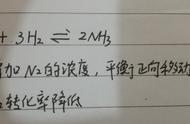 + 3H₂ ⇌ 2NH₃
加 N₂ 的浓度，平衡正向移动
转化率降低